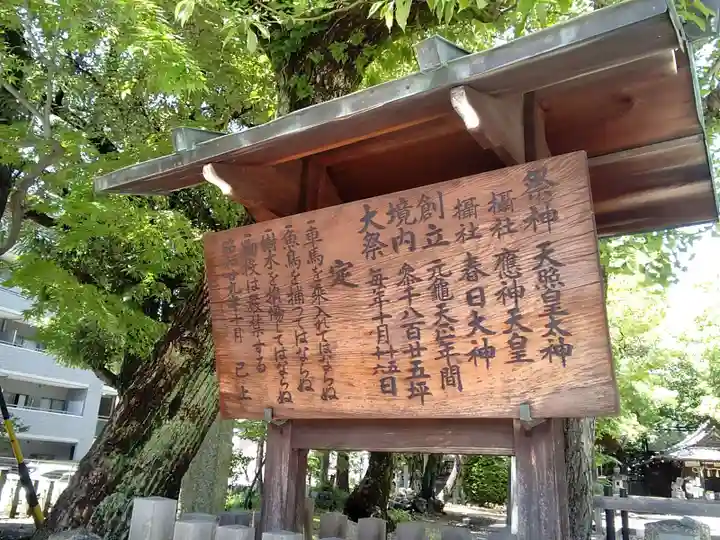 祭神 天照皇大神
攝社 應神天皇
攝社 春日大神
創立 元龜天正年間
境内 零千八百廿五坪
大祭 毎年十月十五日十六日
定
一車馬を乗入れてはならぬ
一魚鳥を捕つてはならぬ
一樹木を損傷してはならぬ
は最集する
十月 已上